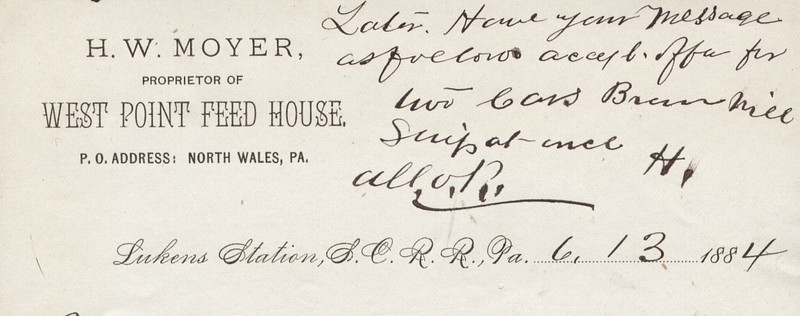 H. W. MOYER,
PROPRIETOR OF
WEST POINT FEED HOUSE.
P. O. ADDRESS: NORTH WALES, PA.
Later. Have your Message
as follows accept offer for
two Cars Bran will
Ship at once
H.
all O.K.
Lukens Station, S. C. R. R., Pa. 6. 13 1884